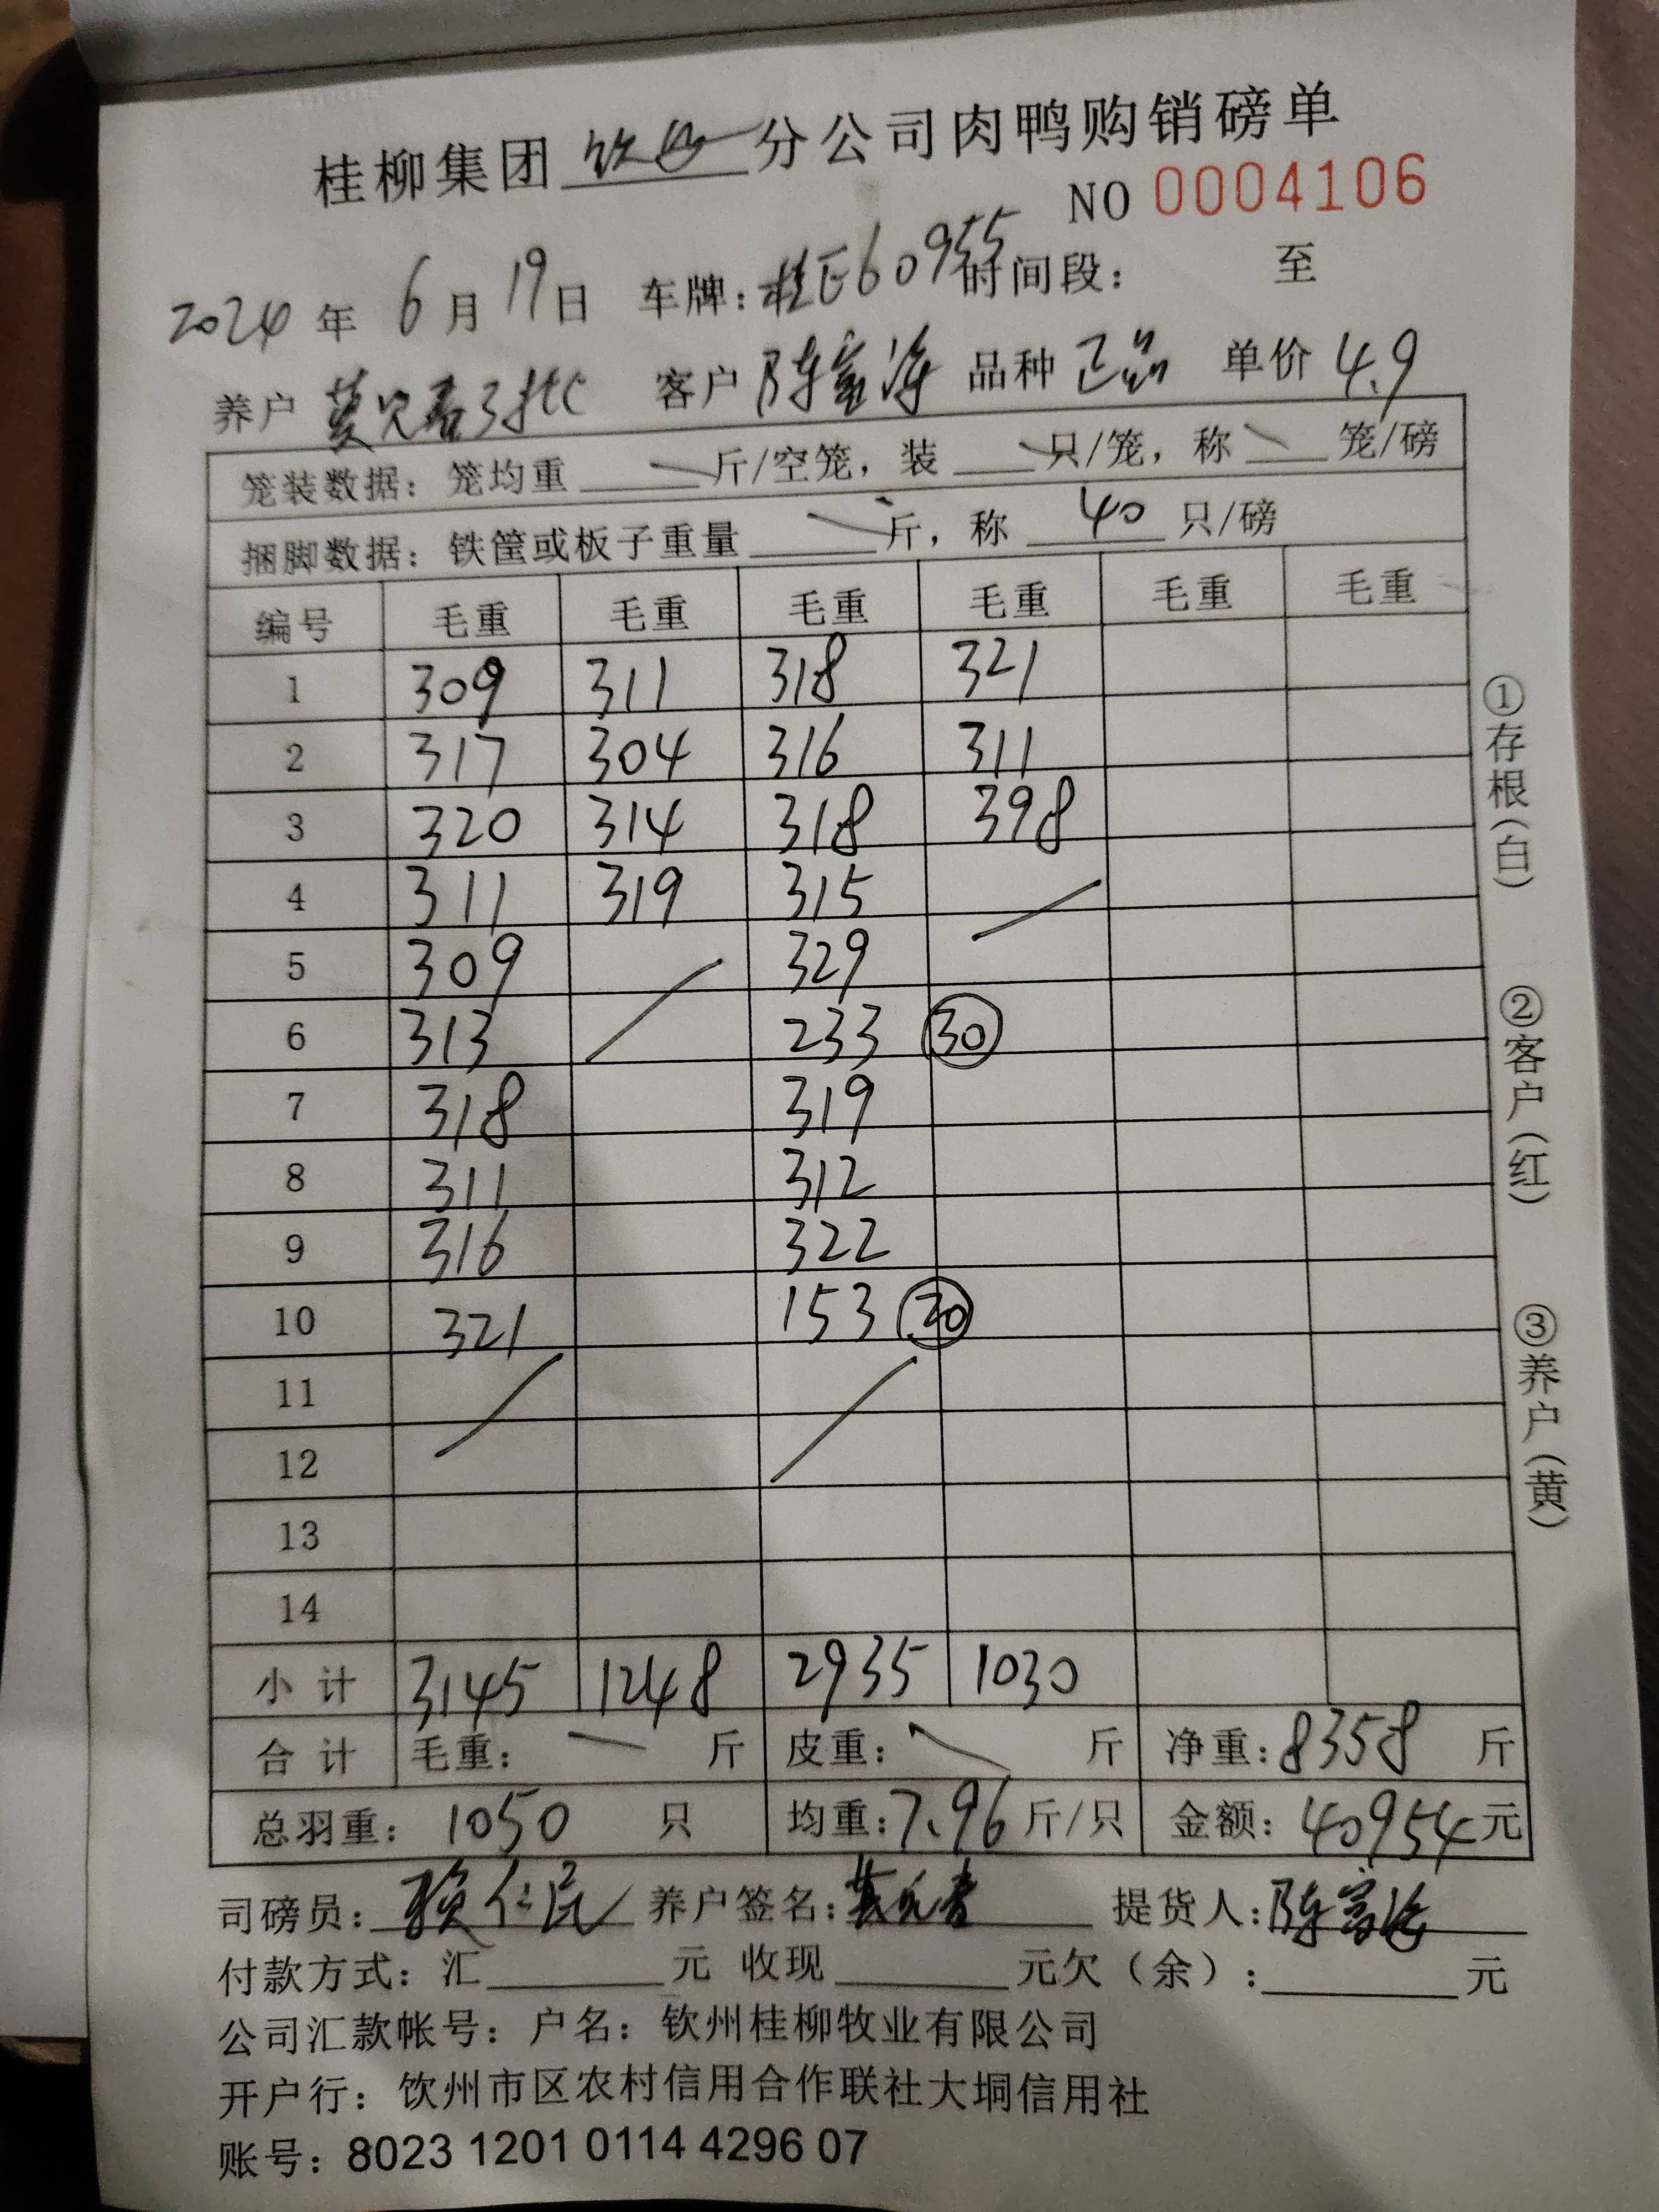 桂柳集团 钦州 分公司肉鸭购销磅单
NO 0004106
2024 年 6 月 19 日 车牌：桂E60955 时间段： 至
养户 客户 陈富海 品种 正品 单价 4.9
笼装数据：笼均重 斤/空笼，装 只/笼，称 笼/磅
捆脚数据：铁筐或板子重量 斤，称 40 只/磅
编号 毛重 毛重 毛重 毛重 毛重 毛重
1 309 311 318 321
2 317 304 316 311
3 320 314 318 398
4 311 319 315
5 309 329
6 313 233 30
7 318 319
8 311 312
9 316 322
10 321 153 20
11
12
13
14
小计 3145 1248 2935 1030
合计 毛重： 斤 皮重： 斤 净重：8358 斤
总羽重：1050 只 均重：7.96 斤/只 金额：40954 元
司磅员：赖仁民 养户签名： 提货人：陈富海
付款方式：汇 元 收现 元欠（余）： 元
公司汇款帐号：户名：钦州桂柳牧业有限公司
开户行：钦州市区农村信用合作联社大垌信用社
账号：8023 1201 0114 4296 07
①存根（白）
②客户（红）
③养户（黄）